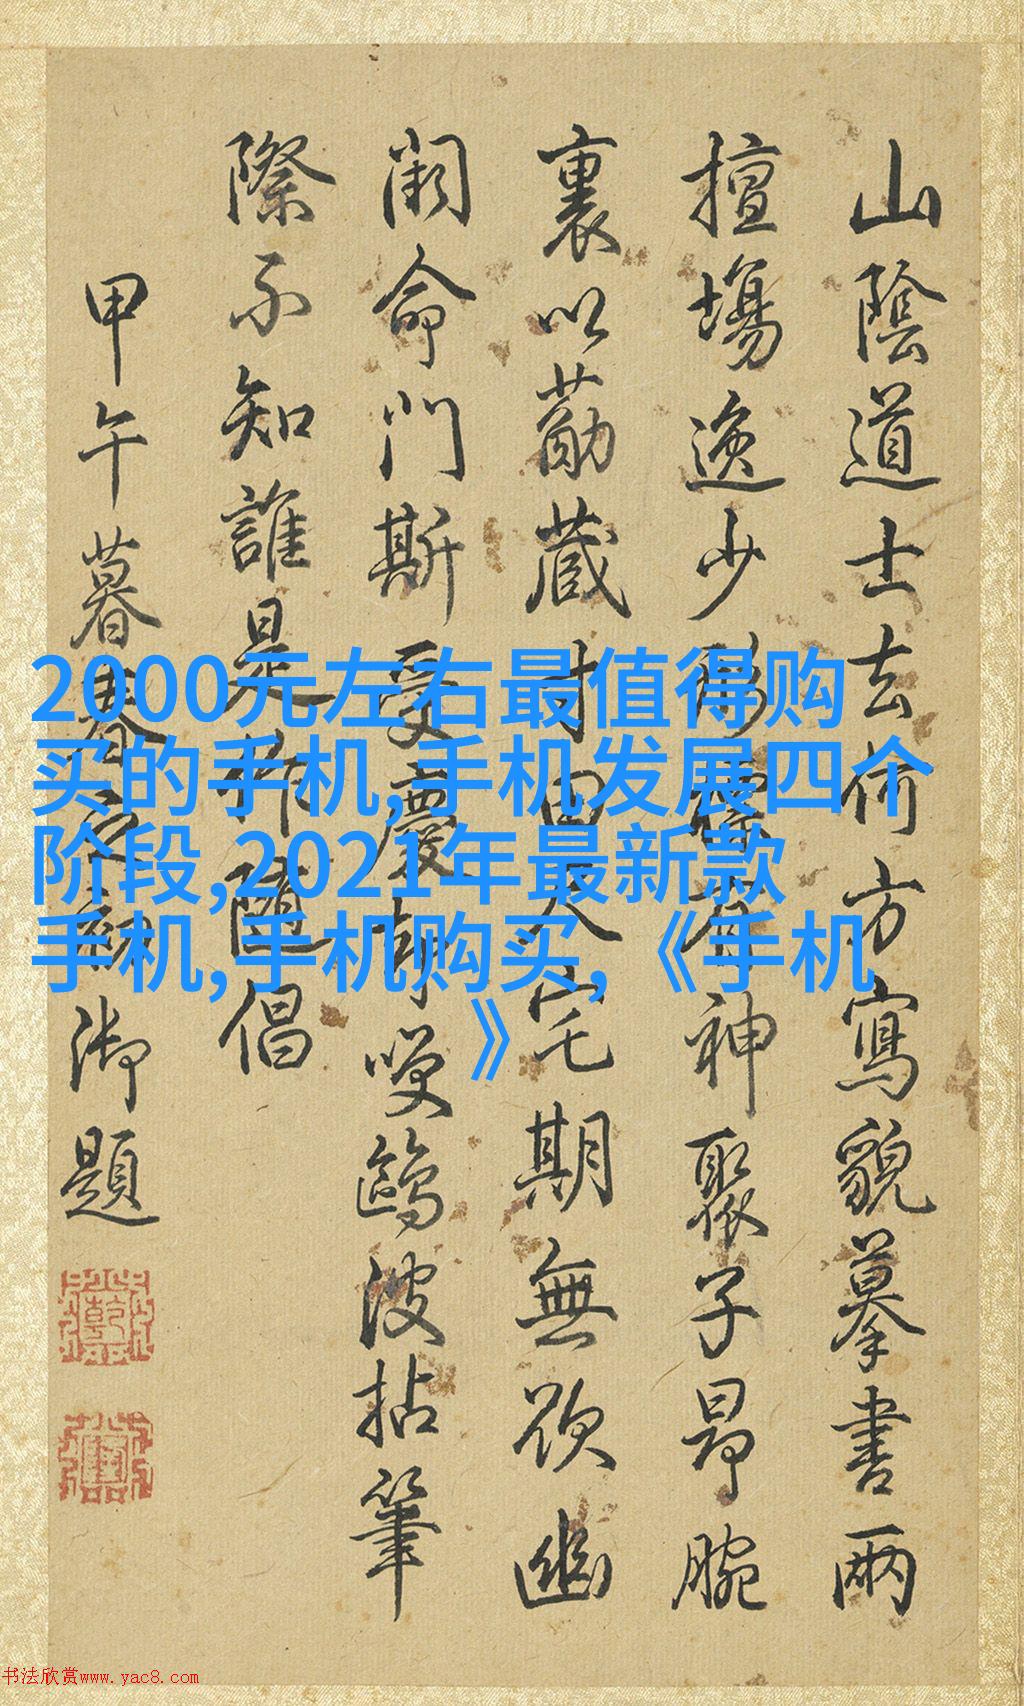 山陰道士去何方寫貌摹書兩
擅場逸少形神聚子昂腕
裏以藏宅期無欲幽
命門斯受慶却嘆鷗波拈筆
際不知誰是隨倡
甲午暮春之初御題
2000元左右最值得购
买的手机,手机发展四个
阶段,2021年最新款
手机,手机购买,《手机
》
书法欣赏www.yac8.com